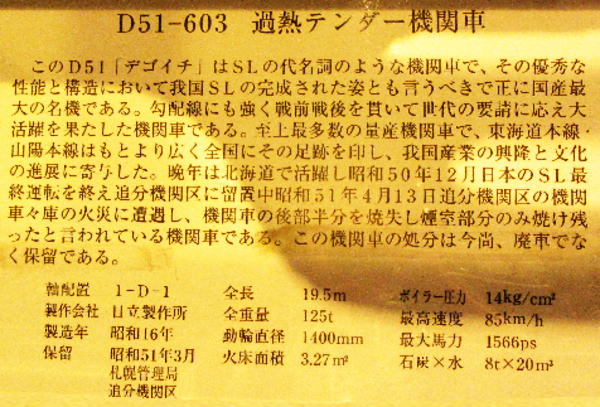 D51-603 過熱テンダー機関車
このD51「デゴイチ」はSLの代名詞のような機関車で、その優秀な
性能と構造において我国SLの完成された姿とも言うべきで正に国産最
大の名機である。勾配線にも強く戦前戦後を貫いて世代の要請に応え大
活躍を果たした機関車である。至上最多数の量産機関車で、東海道本線・
山陽本線はもとより広く全国にその足跡を印し、我国産業の興隆と文化
の進展に寄与した。晩年は北海道で活躍し昭和50年12月日本のSL最
終運転を終え追分機関区に留置中昭和51年4月13日追分機関区の機関
車々庫の火災に遭遇し、機関車の後部半分を焼失し煙室部分のみ焼け残
ったと言われている機関車である。この機関車の処分は今尚、廃車でな
く保留である。
軸配置 1-D-1 全長 19.5m ボイラー圧力 14kg/cm²
製作会社 日立製作所 全重量 125t 最高速度 85km/h
製造年 昭和16年 動輪直径 1400mm 最大馬力 1566ps
保留 昭和51年3月 火床面積 3.27m² 石炭×水 8t×20m³
札幌管理局
追分機関区